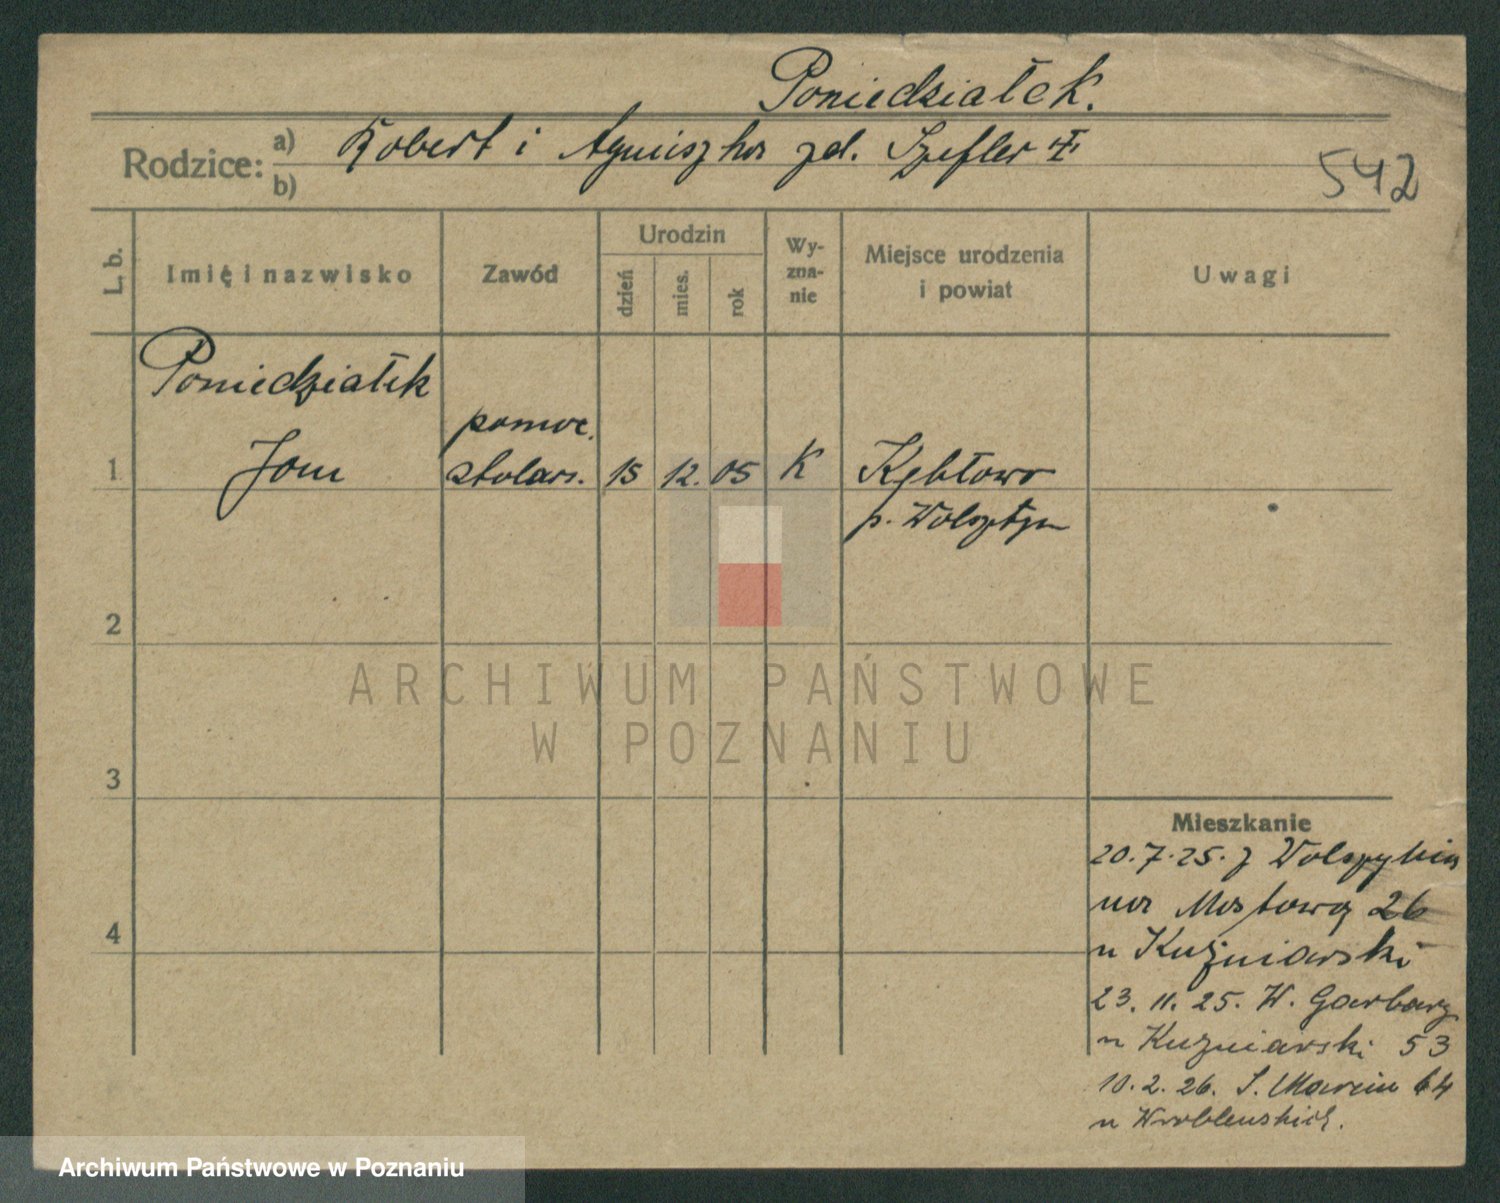 Poniedziałek.
Rodzice: a) Robert i Agnieszka zd. Szefler
b)
542
L. b.
Imię i nazwisko
Zawód
Urodzin
dzień
mies.
rok
Wy-
zna-
nie
Miejsce urodzenia
i powiat
Uwagi
Poniedziałek
pomoc.
1 Jan stolars. 15 12. 05 K Kębłowo
p. Wolsztyn
2
3
4
Mieszkanie
20.7.25. z Wolsztyna
na Mostową 26
u Kuźniarski
23. 11. 25. W. Garbary
u Kuzniarski 53
10. 2. 26. S. Marcin 64
u Wroblewskich.
ARCHIWUM PAŃSTWOWE
W POZNANIU
Archiwum Państwowe w Poznaniu